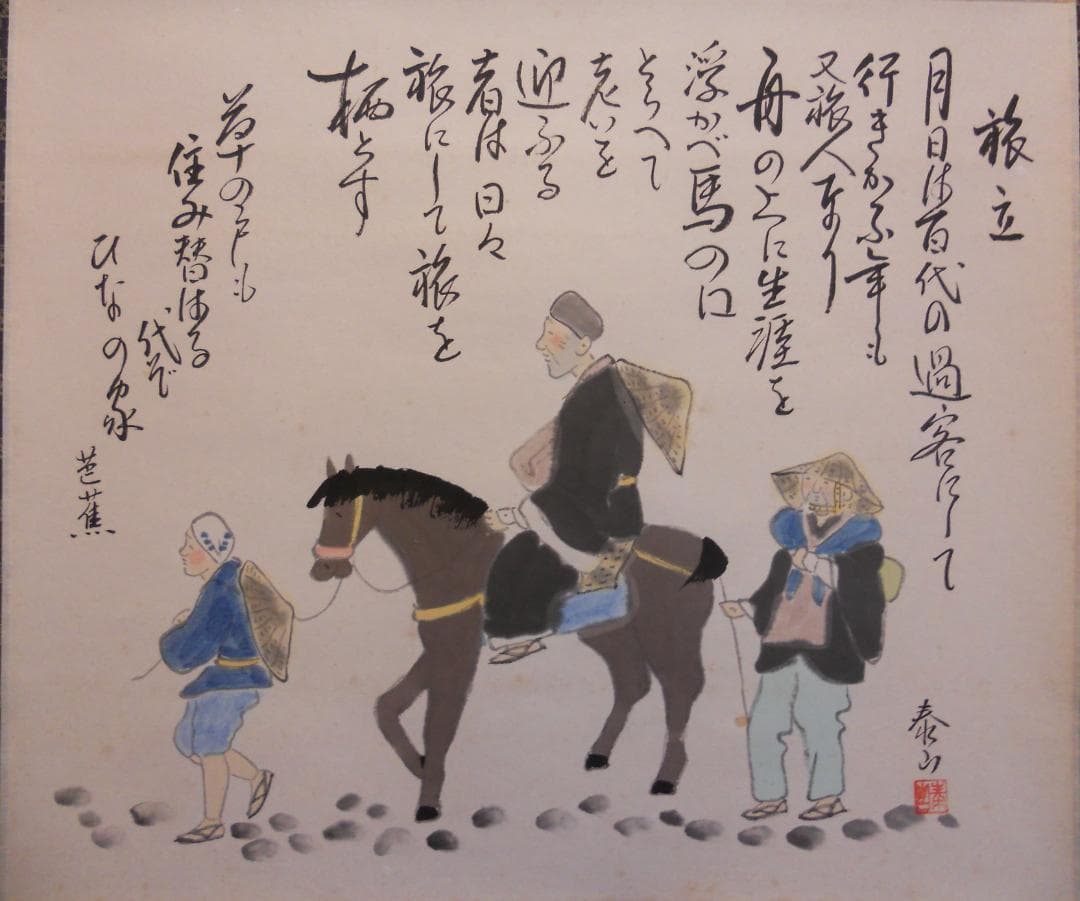 旅立
月日は百代の過客にして
行きかふ年も
又旅人なり
舟の上に生涯を
浮かべ馬の口
とらへて
老いを
迎ふる
者は日々
旅にして旅を
栖とす
草の戸も
住み替はる
代ぞ
ひなの家
芭蕉
泰山